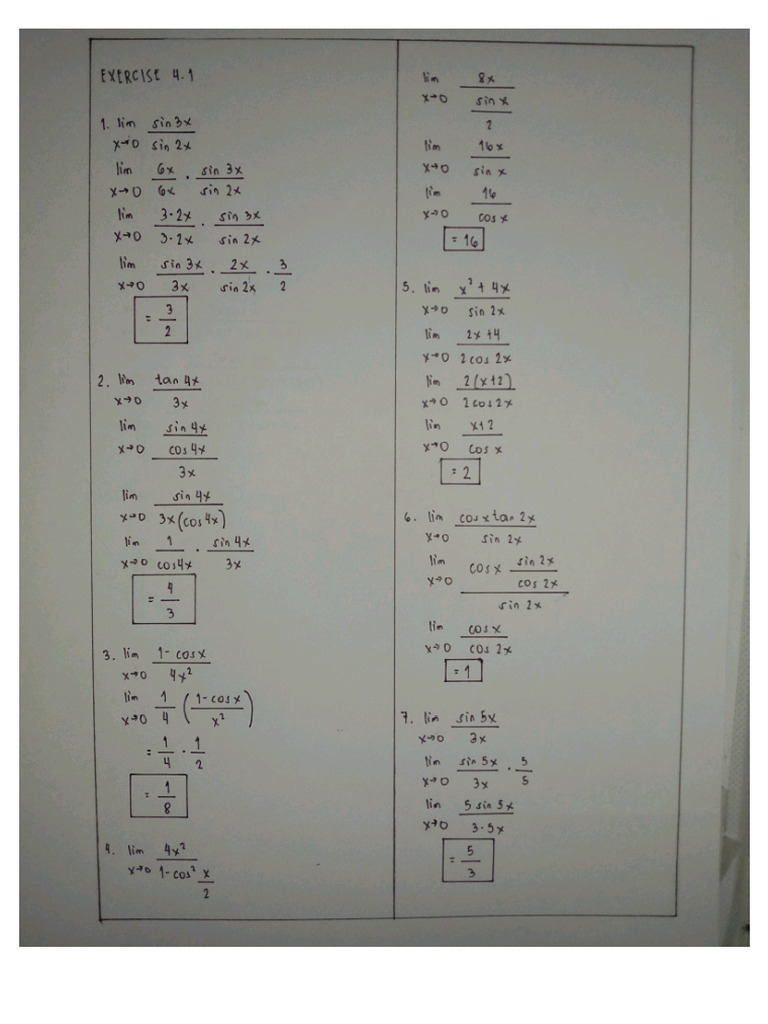 EXERCISE 4.1
1. lim x→0 sin 3x / sin 2x
lim x→0 6x / 6x · sin 3x / sin 2x
lim x→0 3·2x / 3·2x · sin 3x / sin 2x
lim x→0 sin 3x / 3x · 2x / sin 2x · 3 / 2
= 3 / 2
2. lim x→0 tan 4x / 3x
lim x→0 (sin 4x / cos 4x) / 3x
lim x→0 sin 4x / 3x(cos 4x)
lim x→0 1 / cos 4x · sin 4x / 3x
= 4 / 3
3. lim x→0 1 - cos x / 4x²
lim x→0 1 / 4 (1 - cos x / x²)
= 1 / 4 · 1 / 2
= 1 / 8
4. lim x→0 4x² / 1 - cos² x/2
lim x→0 8x / (sin x / 2)
lim x→0 16x / sin x
lim x→0 16 / cos x
= 16
5. lim x→0 x² + 4x / sin 2x
lim x→0 2x + 4 / 2 cos 2x
lim x→0 2(x+2) / 2 cos 2x
lim x→0 x+2 / cos x
= 2
6. lim x→0 cos x tan 2x / sin 2x
lim x→0 cos x (sin 2x / cos 2x) / sin 2x
lim x→0 cos x / cos 2x
= 1
7. lim x→0 sin 5x / 3x
lim x→0 sin 5x / 3x · 5 / 5
lim x→0 5 sin 5x / 3·5x
= 5 / 3